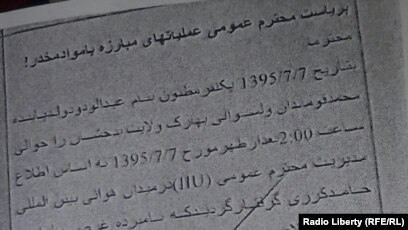 بریاست محترم عمومی عملیاتهای مبارزه بامواد مخدر!
محترما
بتاریخ 1395/7/7 یکنفر مظنون بنام عبدالودود ولد پاینده
محمد قومندان ولسوالی بهارک ولایت بدخشان را حوالی
ساعت 2:00 بعدازظهر مورخ 1395/7/7 به اساس اطلاع
مدیریت محترم عمومی (IIU) درمیدان هوائی بین المللی
حامد کرزی گرفتار گردیده که نامبرده
Radio Liberty (RFE/RL)